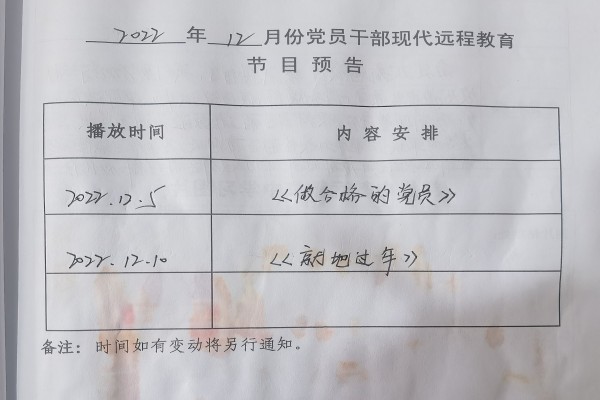 2022 年 12 月份党员干部现代远程教育
节 目 预 告
播放时间 内 容 安 排
2022.12.5 《做合格的党员》
2022.12.10 《就地过年》
备注：时间如有变动将另行通知。